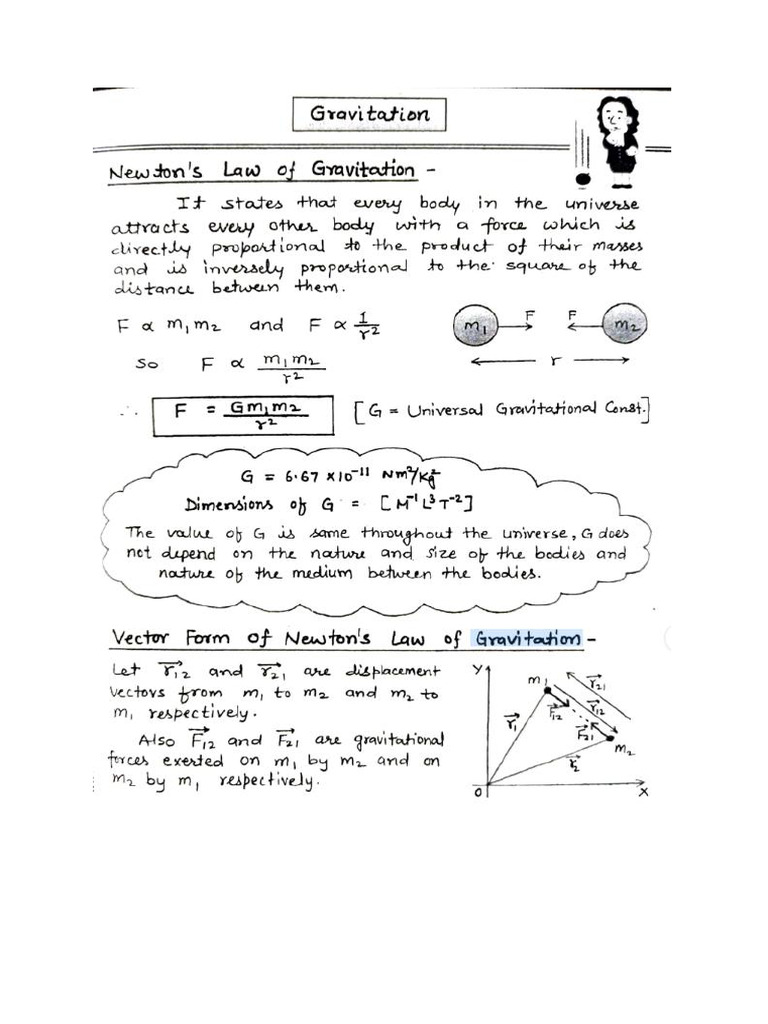 Gravitation
Newton's Law of Gravitation -
It states that every body in the universe
attracts every other body with a force which is
directly proportional to the product of their masses
and is inversely proportional to the square of the
distance between them.
F ∝ m₁m₂ and F ∝ 1/r²
so F ∝ m₁m₂/r²
m₁ F F m₂
r
∴ F = Gm₁m₂/r² [G = Universal Gravitational Const.]
G = 6.67 × 10⁻¹¹ Nm²/Kg²
Dimensions of G = [M⁻¹L³T⁻²]
The value of G is same throughout the universe, G does
not depend on the nature and size of the bodies and
nature of the medium between the bodies.
Vector Form of Newton's Law of Gravitation -
Let r⃗₁₂ and r⃗₂₁ are displacement
vectors from m₁ to m₂ and m₂ to
m₁ respectively.
Also F⃗₁₂ and F⃗₂₁ are gravitational
forces exerted on m₁ by m₂ and on
m₂ by m₁ respectively.
Y
m₁ r⃗₂₁
r⃗₁₂
r⃗₁ F⃗₁₂
F⃗₂₁
m₂
r⃗₂
O X